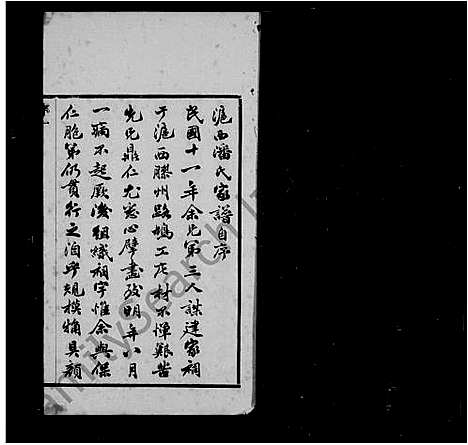 滬西潘氏家譜自序
民國十一年余兄弟三人謀建家祠
于滬西膠州路鳩工庀材不憚艱苦
先兄鼎仁尤悉心擘畫致明年六月
一病不起厥後組織祠宇惟余與保
仁胞弟仍貫行之洎乎規模犕具顏
FamilySearch